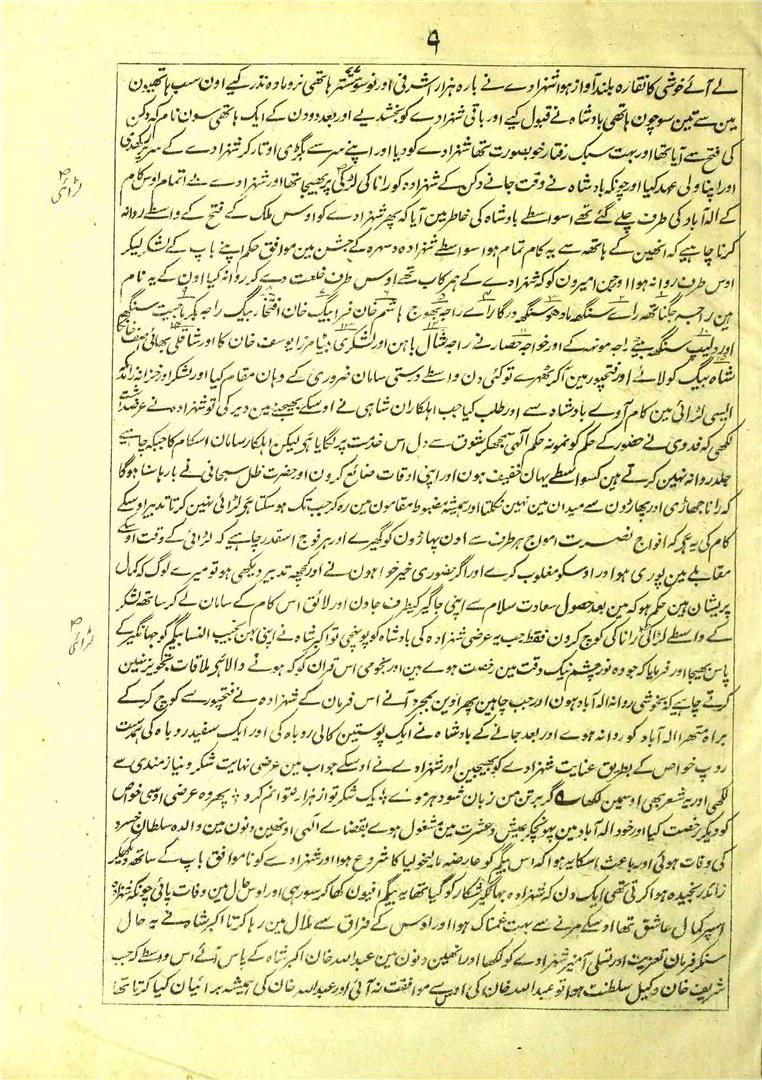 ۹
لے آئے خوشی کا نقارہ بلند آواز ہوا شہزادے نے بارہ ہزار اشرفی اور نو سو ستتر ہاتھی نر و مادہ نذر کیے اون سب ہاتھیون
مین سے تین سو چون ہاتھی بادشاہ نے قبول کیے اور باقی شہزادے کو بخشدیے اور بعد دو دن کے ایک ہاتھی سون نام کہ دکن
کی فتح سے آیا تھا اور بہت سبک رفتار خوبصورت تھا شہزادے کو دیا اور اپنے سر سے پگڑی اوتار کر شہزادے کے سر پر رکھدی
اور اپنا ولی عہد کیا اور چونکہ بادشاہ نے وقت جانے دکن کے شہزادہ کو رانا کی لڑائی پر بھیجا تھا اور شہزادے بے اتمام اوس کام
لڑائی
کے الہ آباد کی طرف چلے گئے تھے اسواسطے بادشاہ کی خاطر مین آیا کہ پھر شہزادے کو اوس ملک کے فتح کے واسطے روانہ
کرنا چاہیے کہ انھین کے ہاتھ سے یہ کام تمام ہو اسواسطے شہزادہ دسہرہ کے جشن مین موافق حکم اپنے باپ کے لشکر لیکر
اوس طرف روانہ ہوا اور جن امیرون کو کہ شہزادے کے ہمرکاب تھے اوس طرف خلعت دے کر روانہ کیا اون کے یہ نام
ہین راجہ جگناتھ راے سنگھ مادھو سنگھ درگا راے راجہ بھوج ہاشم خان قرا بیگ خان افتخار بیگ راجہ بکرماجیت سنگھ
اور دلیپ سنگھ بیٹے راجہ موٹہ کے اور خواجہ حصارنے راجہ شال باہن اور لشکری بیٹا میرزا یوسف خان کا اور شاہ قلی بھائی آصف خانکا
شاہ بیگ کولائے اور فتحپور مین آکر ٹھہرے تو کئی دن واسطے درستی سامان ضروری کے وہان مقام کیا اور لشکر اور خزانہ زائد کہ
ایسی لڑائی مین کام آوے بادشاہ سے اور طلب کیا جب اہلکاران شاہی نے اوسکے بھیجنے مین دیر کی تو شہزادہ نے عرضداشت
لکھی کہ فدوی نے حضور کے حکم کو نمونہ حکم الٰہی سمجھکر شوق سے دل اس خدمت پر لگایا ہی لیکن اہلکار سامان اس کام کا جیسا کہ چاہیے
جلد روانہ نہین کرتے ہین کسواسطے یہان خفیف ہون اور اپنی اوقات ضائع کرون اور حضرت ظل سبحانی نے بارہا سنا ہوگا
کہ رانا جھاڑی اور پہاڑون سے میدان مین نہین نکلتا اور ہمیشہ مضبوط مقامون مین رہ کر جب تک ہو سکتا ہی لڑائی نہین کرتا تدبیر اوسکے
کام کی یہ ہی کہ افواج نصرت امواج ہر طرف سے اون پہاڑون کو گھیرے اور ہر فوج اسقدر چاہیے کہ لڑائی کے وقت اوسکے
مقابلے مین پوری ہو اور اوسکو مغلوب کرے اور اگر حضوری خیر خواہون نے اور کچھ تدبیر دیکھی ہو تو میرے لوگ کہ کمال
پریشان ہین حکم ہو کہ مین بعد حصول سعادت سلام سے اپنی جاگیر کیطرف جاون اور لائق اس کام کے سامان لے کر ساتھ لشکر
کے واسطے لڑائی رانا کی کوچ کرون فقط جب یہ عرضی شہزادہ کی بادشاہ کو پہونچی تو اکبر شاہ نے اپنی بہن نجیب النسا بیگم کو جہانگیر کے
لڑائی
پاس بھیجا اور فرمایا کہ جو وہ نور چشم نیک وقت مین رخصت ہوے ہین اور نجومی اس قران کو کہ ہونے والا ہی ملاقات تجویز نہین
کرتے چاہیے کہ بخوشی روانہ الہ آباد ہون اور جب چاہین پھر آوین بمجرد آنے اس فرمان کے شہزادہ نے فتحپور سے کوچ کرکے
براہ متھرا الہ آباد کو روانہ ہوے اور بعد جانے کے بادشاہ نے ایک پوستین کالی روباہ کی اور ایک سفید روباہ کی بدست
روپ خواص کے بطریق عنایت شہزادے کو بھیجین اور شہزادے نے اوسکے جواب مین عرضی نہایت شکر و نیازمندی سے
لکھی اور یہ شعر بھی اوسمین لکھا ؎ گر بر تن من زبان شود ہر موے ؛ یک شکر تو از ہزار نتوانم کرد ؛ پھر وہ عرضی اوسی خواص
کو دیکر رخصت کیا اور خود الہ آباد مین پہونچکر عیش و عشرت مین مشغول ہوے بقضاے الٰہی اونھین دنون مین والدہ سلطان خسرو
کی وفات ہوئی اور باعث اسکا یہ ہوا کہ اس بیگم کو عارضہ مالیخولیا کا شروع ہوا اور شہزادے کو ناموافق باپ کے ساتھ دیکھکر
زائد رنجیدہ ہوا کرتی تھی ایک دن کہ شہزادہ جہانگیر شکار کو گیا تھا یہ بیگم افیون کھا کر سو رہی اور اوس حال مین وفات پائی چونکہ شہزادہ
اسپر کمال عاشق تھا اوسکے مرنے سے بہت غمناک ہوا اور اوس کے فراق سے ملال مین رہا کرتا اکبر شاہ نے یہ حال
سنکر فرمان تعزیت اور تسلی آمیز شہزادے کو لکھا اور انھین دنون مین عبداللہ خان اکبر شاہ کے پاس آئے اس واسطے کہ جب
شریف خان وکیل سلطنت ہوا تو عبداللہ خان کی اوس سے موافقت نہ آئی اور عبداللہ خان کی ہمیشہ برائیان کیا کرتا تھا